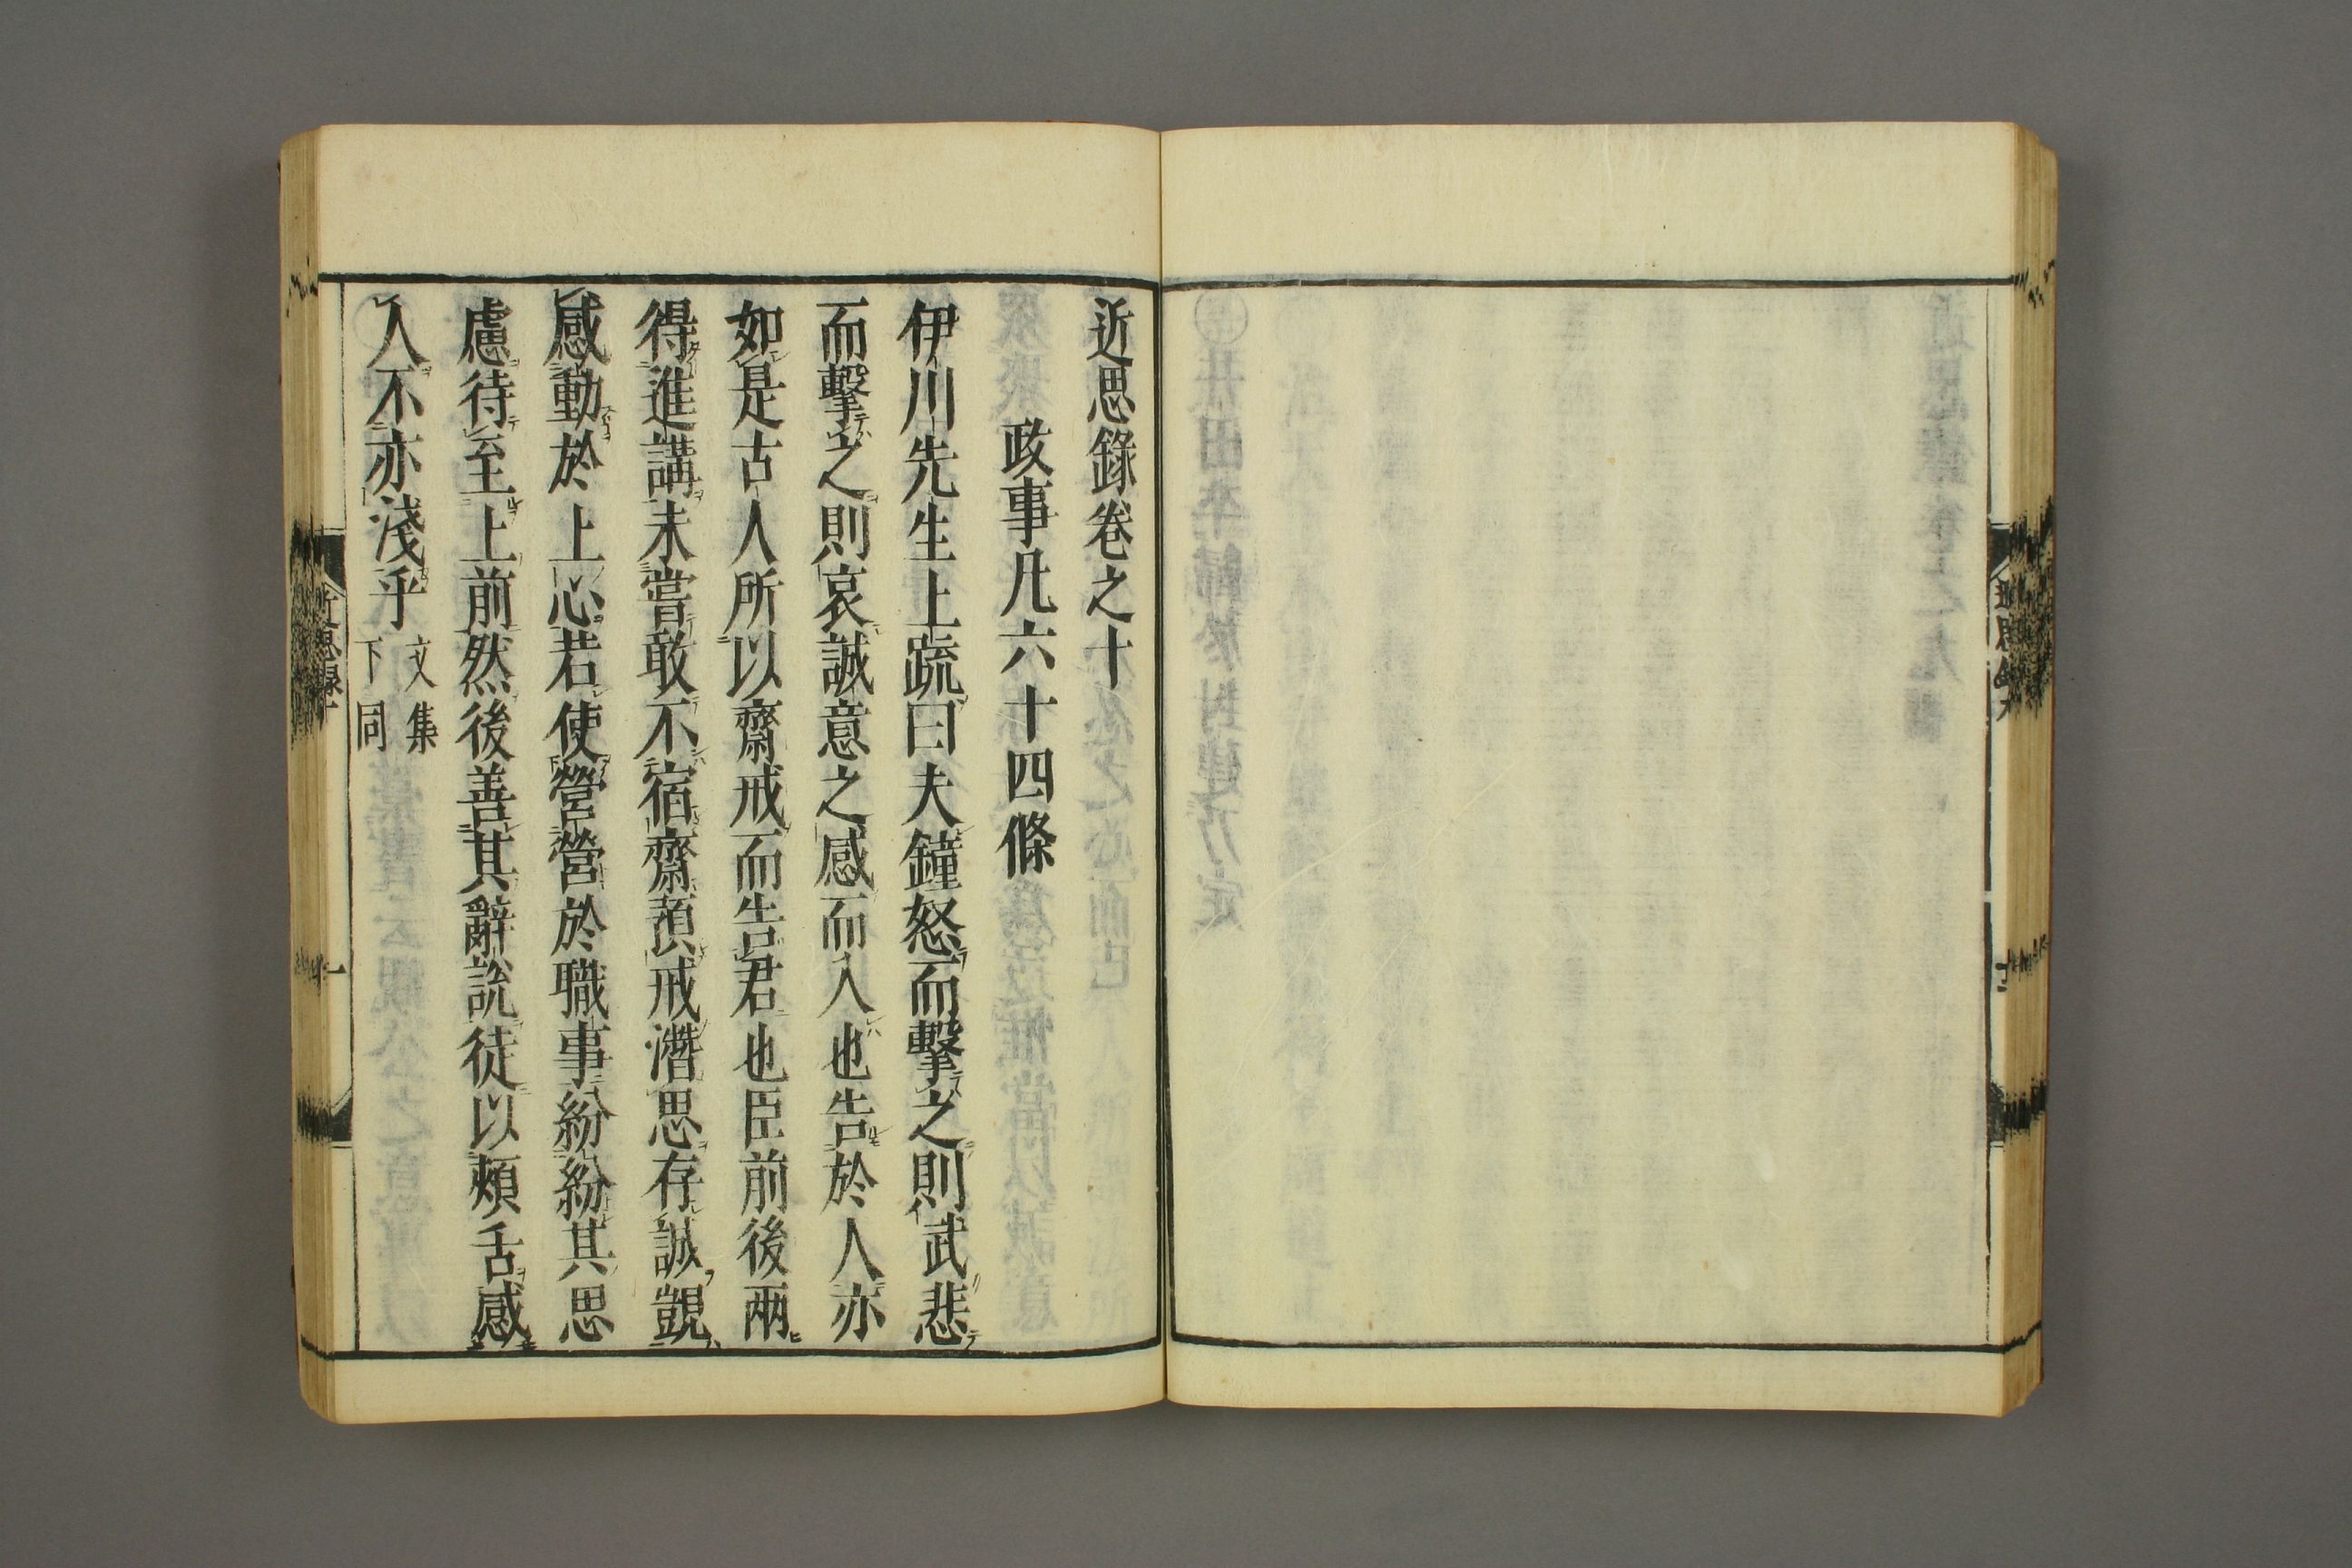 近思錄卷之十
政事凡六十四條
伊川先生上疏曰夫鐘怒而擊之則武悲
而擊之則哀誠意之感而入也告於人亦
如是古人所以齋戒而告君也臣前後兩
得進講未嘗敢不宿齋預戒潛思存誠覬
感動於上心若使營營於職事紛紛其思
慮待至上前然後善其辭說徒以頰舌感
人不亦淺乎 文集
下同
近思錄十
一